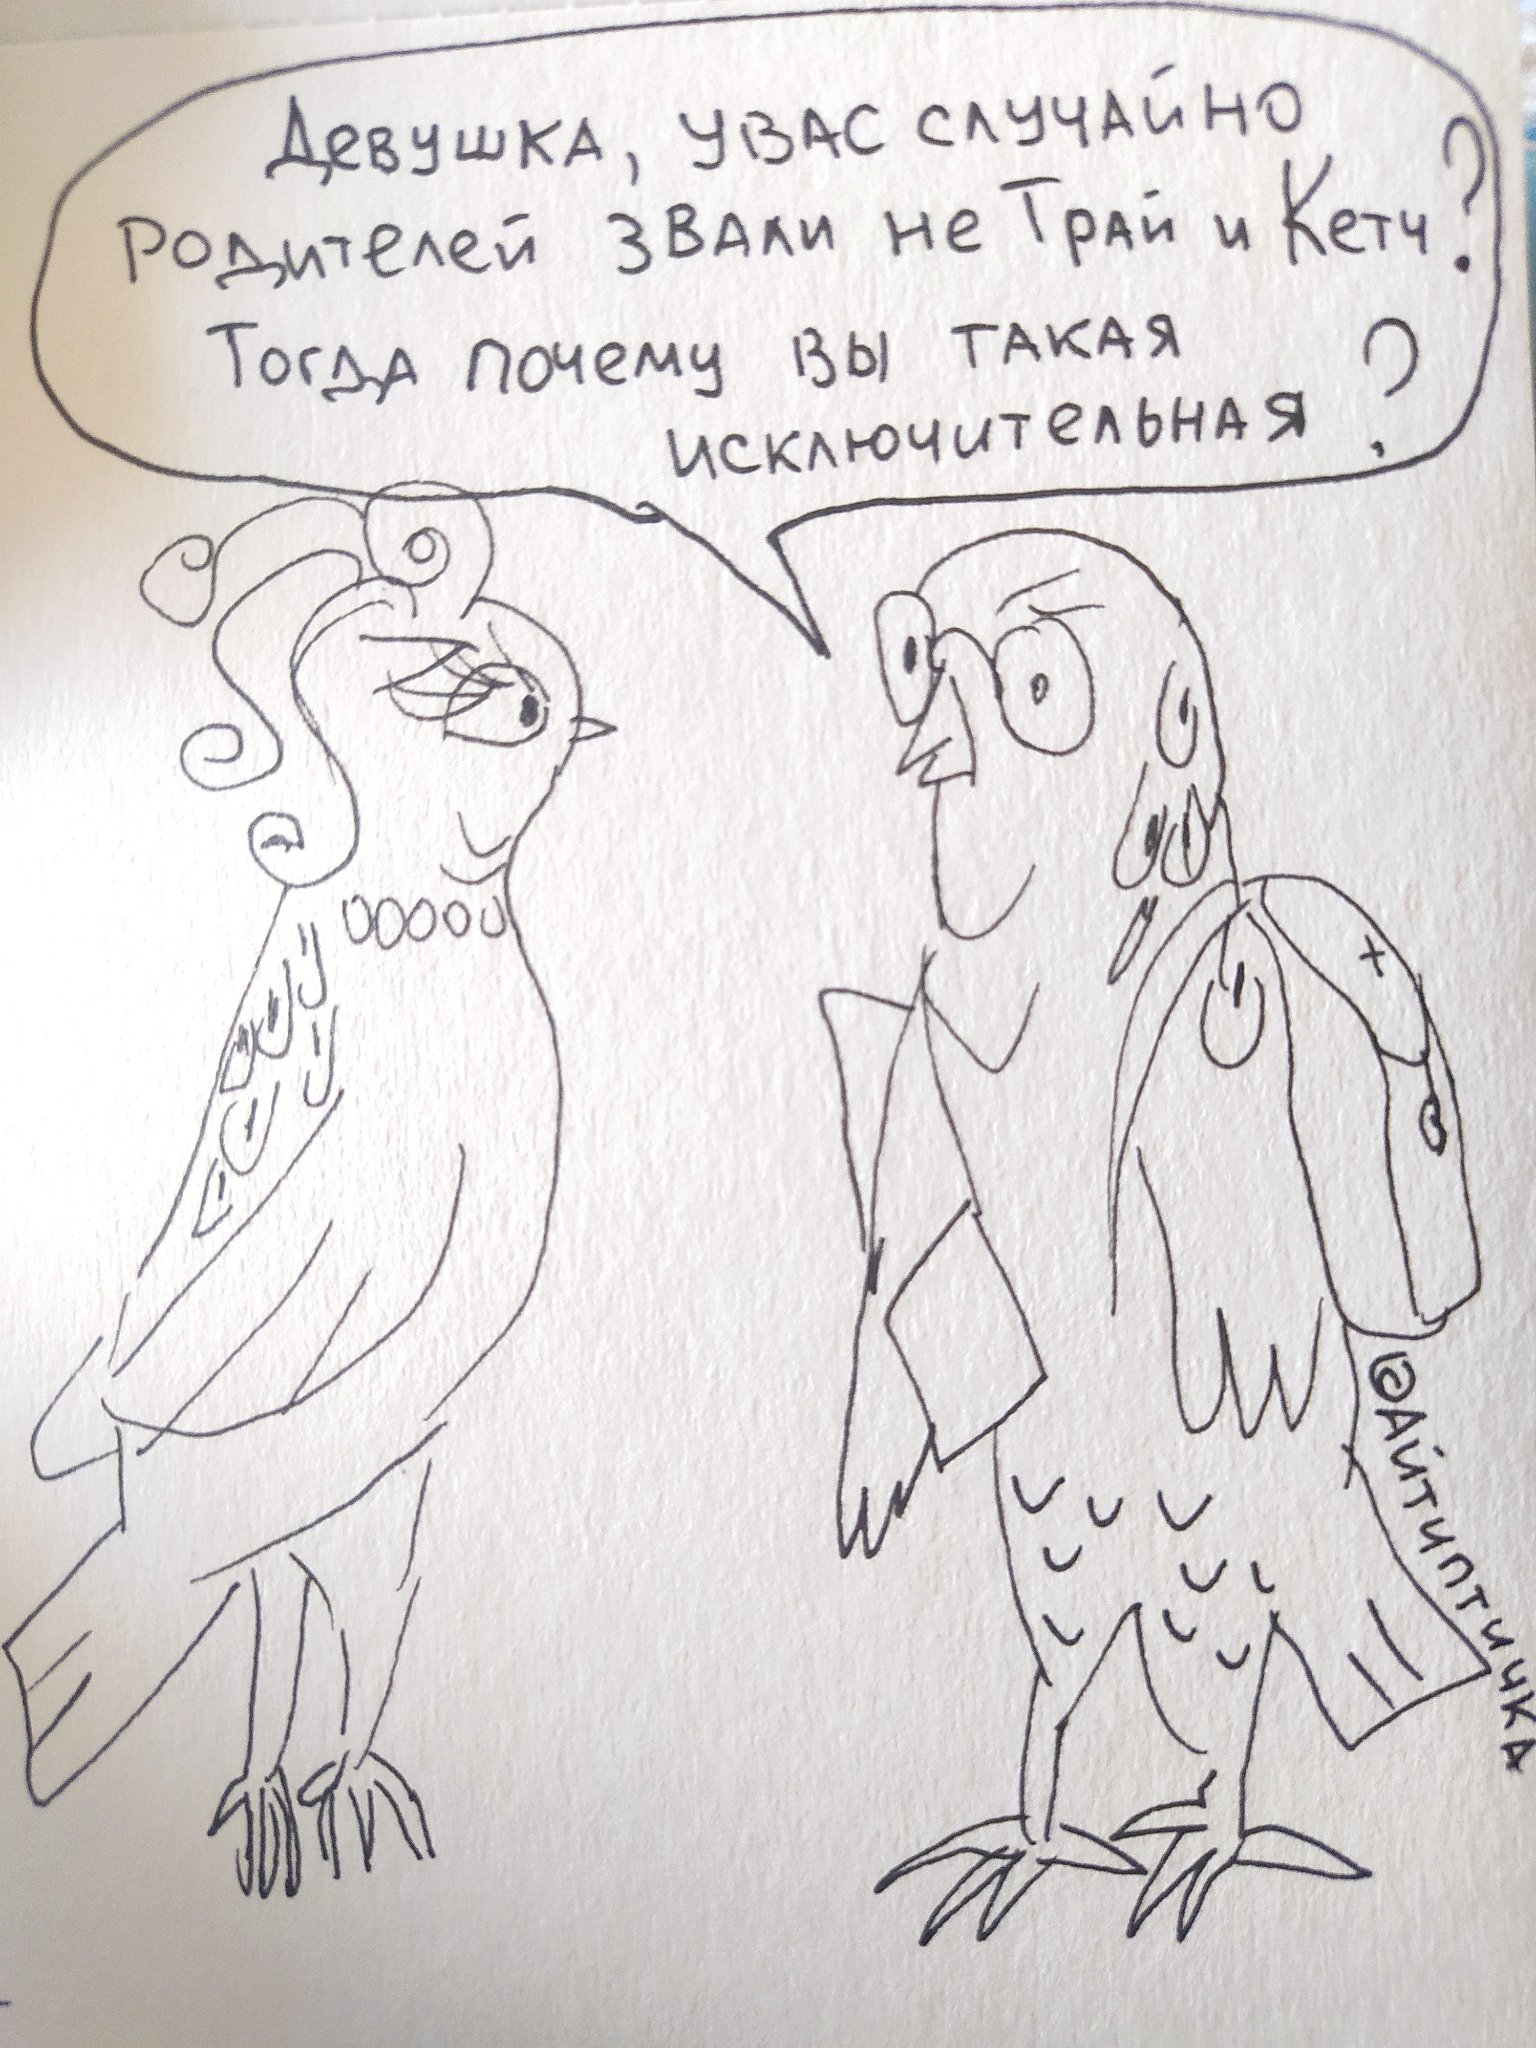 Девушка, у вас случайно
родителей звали не Трай и Кетч?
Тогда почему вы такая
исключительная?
@Айтиптичка